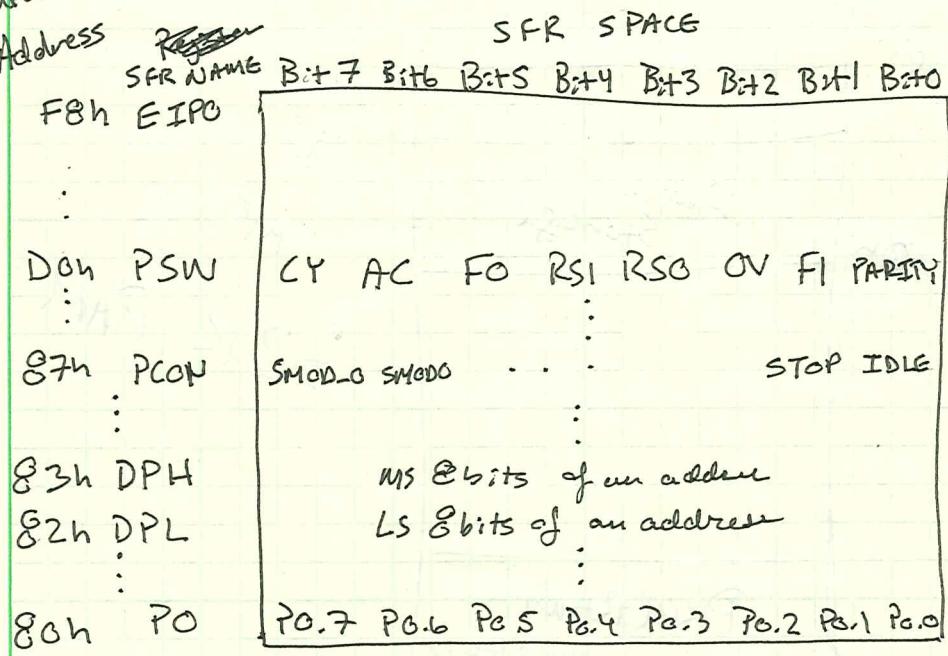 SFR SPACE
Address
SFR NAME Bit7 Bit6 Bit5 Bit4 Bit3 Bit2 Bit1 Bit0
F8h EIP0
D0h PSW CY AC F0 RS1 RS0 OV F1 PARITY
87h PCON SMOD_0 SMOD0 . . . STOP IDLE
83h DPH MS 8 bits of an address
82h DPL LS 8 bits of an address
80h P0 P0.7 P0.6 P0.5 P0.4 P0.3 P0.2 P0.1 P0.0